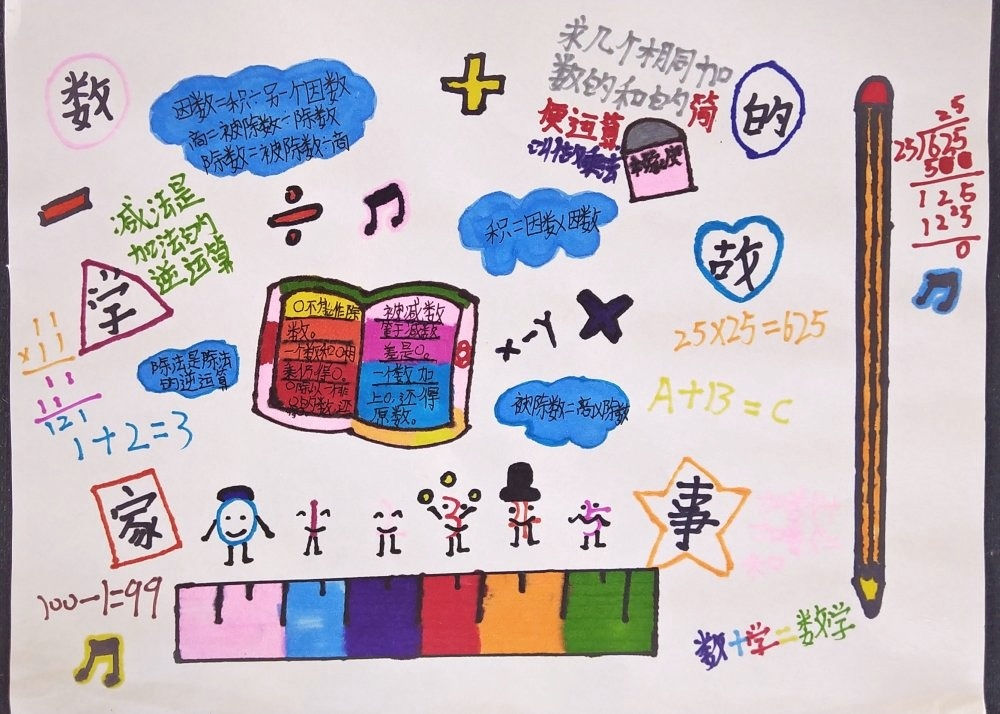 数
学
家
的
故
事
因数=积÷另一个因数
商=被除数÷除数
除数=被除数÷商
求几个相同加
数的和的简
便运算
叫做乘法
减法是
加法的
逆运算
积=因数×因数
25
25)625
50
125
125
0
0不能作除
数。
一个数和0相
乘仍得0。
被减数
等于减数
差是0。
一个数加
上0,还得
原数。
+-Y×
25×25=625
11
×11
11
11
121
除法是除法
的逆运算
1+2=3
被除数=商×除数
A+B=C
100-1=99
数+学=数学